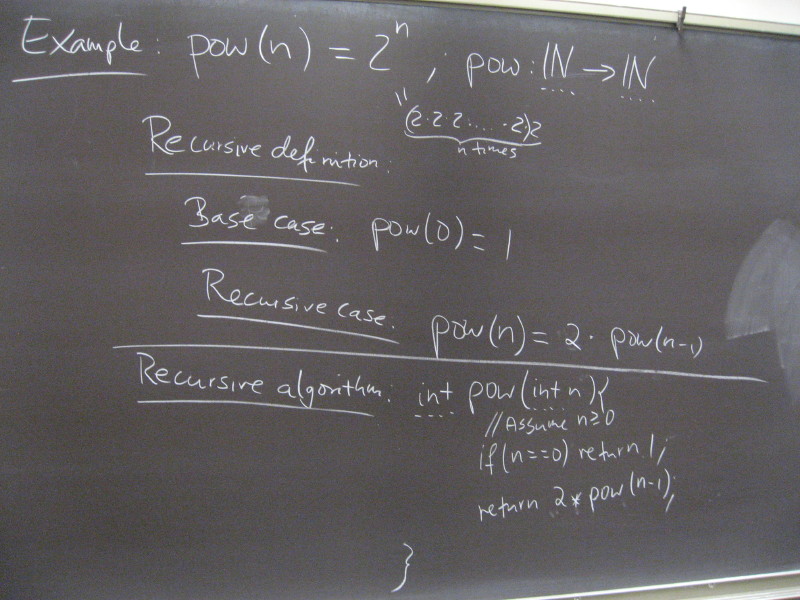 Example: pow(n) = 2ⁿ ; pow: ℕ → ℕ
"
(2·2·2·....·2·)2
n times
Recursive definition:
Base case: pow(0) = 1
Recursive case: pow(n) = 2 · pow(n-1)
Recursive algorithm: int pow(int n){
//Assume n≥0
if(n==0) return 1;
return 2*pow(n-1);
}